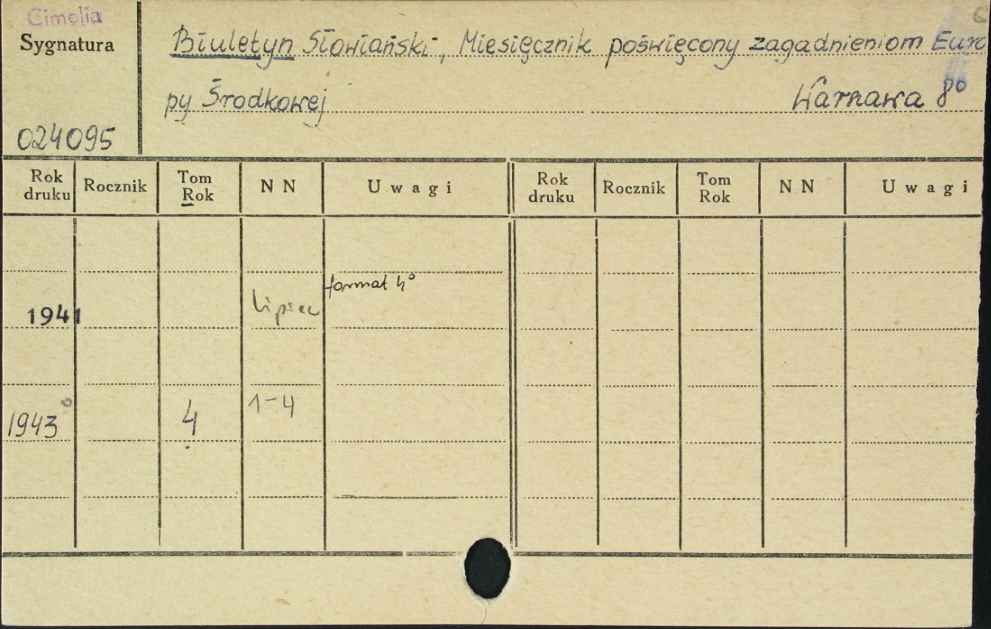 Cimelia
Sygnatura
Biuletyn Słowiański, Miesięcznik poświęcony zagadnieniom Euro
py Środkowej Warszawa 8°
024095
Rok druku Rocznik Tom Rok N N Uwagi Rok druku Rocznik Tom Rok N N Uwagi
format 4°
1941 lipiec
1943 4 1-4